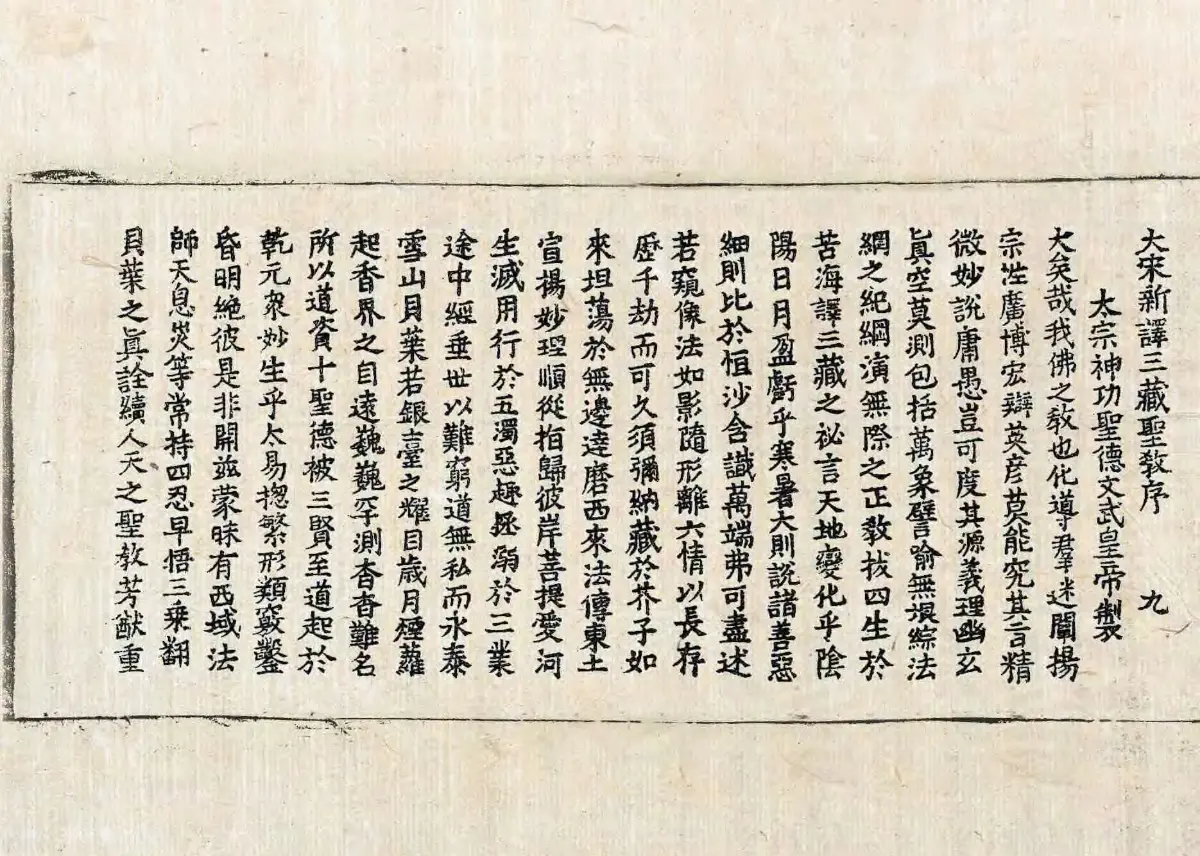 大宋新譯三藏聖教序　九
太宗神功聖德文武皇帝製
大矣哉我佛之教也化導羣迷闡揚
宗性廣博宏辯英彦莫能究其言精
微妙說庸愚豈可度其源義理幽玄
眞空莫測包括萬象譬喻無垠綜法
網之紀綱演無際之正教拔四生於
苦海譯三藏之祕言天地變化乎陰
陽日月盈虧乎寒暑大則說諸善惡
細則比於恒沙含識萬端弗可盡述
若窺像法如影隨形離六情以長存
歷千劫而可久須彌納藏於芥子如
來坦蕩於無邊達磨西來法傳東土
宣揚妙理順從指歸彼岸菩提愛河
生滅用行於五濁惡趣拯溺於三業
途中經垂世以難窮道無私而永泰
雪山貝葉若銀臺之耀目歲月煙蘿
起香界之自遠巍巍罕測杳杳難名
所以道資十聖德被三賢至道起於
乾元衆妙生乎太易揔繁形類竅鑿
昏明絶彼是非開兹蒙昧有西域法
師天息災等常持四忍早悟三乘翻
貝葉之眞詮續人天之聖教芳猷重